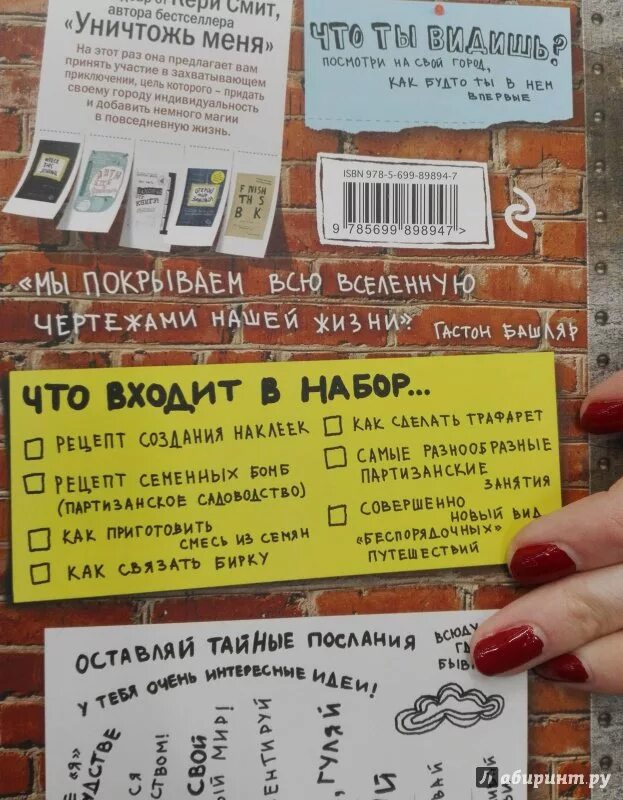 Кери Смит,
автора бестселлера
«Уничтожь меня»
На этот раз она предлагает вам
принять участие в захватывающем
приключении, цель которого – придать
своему городу индивидуальность
и добавить немного магии
в повседневную жизнь.
ЧТО ТЫ ВИДИШЬ?
ПОСМОТРИ НА СВОЙ ГОРОД,
КАК БУДТО ТЫ В НЕМ
ВПЕРВЫЕ
ISBN 978-5-699-89894-7
9 785699 898947 >
FINISH
THIS
B K
«МЫ ПОКРЫВАЕМ ВСЮ ВСЕЛЕННУЮ
ЧЕРТЕЖАМИ НАШЕЙ ЖИЗНИ». ГАСТОН БАШЛЯР
ЧТО ВХОДИТ В НАБОР...
РЕЦЕПТ СОЗДАНИЯ НАКЛЕЕК
РЕЦЕПТ СЕМЕННЫХ БОМБ
(ПАРТИЗАНСКОЕ САДОВОДСТВО)
КАК ПРИГОТОВИТЬ
СМЕСЬ ИЗ СЕМЯН
КАК СВЯЗАТЬ БИРКУ
КАК СДЕЛАТЬ ТРАФАРЕТ
САМЫЕ РАЗНООБРАЗНЫЕ
ПАРТИЗАНСКИЕ
ЗАНЯТИЯ
СОВЕРШЕННО
НОВЫЙ ВИД
«БЕСПОРЯДОЧНЫХ»
ПУТЕШЕСТВИЙ
ОСТАВЛЯЙ ТАЙНЫЕ ПОСЛАНИЯ
ВСЮДУ
У ТЕБЯ ОЧЕНЬ ИНТЕРЕСНЫЕ ИДЕИ!
«Я»
СВОЙ
МИР!
ГУЛЯЙ
Лабиринт.ру